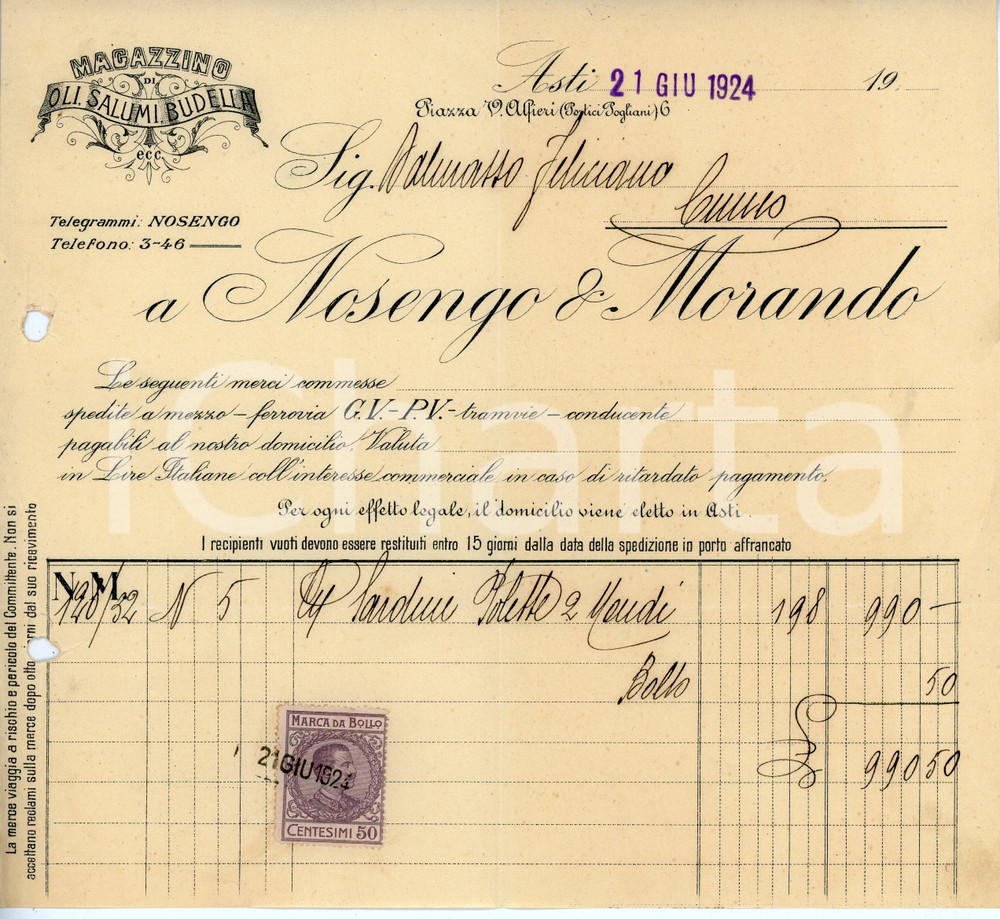 MAGAZZINO
DI
OLI. SALUMI. BUDELLA
ecc.
Asti 21 GIU 1924 19
Piazza V. Alfieri (Portici Pogliani) 6
Sig. Dalmasso Feliciano
Cuneo
Telegrammi: NOSENGO
Telefono: 3-46
a Nosengo & Morando
Le seguenti merci commesse
spedite a mezzo - ferrovia G.V.-P.V.- tramvie - conducente
pagabili al nostro domicilio. Valuta
in Lire Italiane coll'interesse commerciale in caso di ritardato pagamento.
Per ogni effetto legale, il domicilio viene eletto in Asti.
I recipienti vuoti devono essere restituiti entro 15 giorni dalla data della spedizione in porto affrancato
La merce viaggia a rischio e pericolo del Committente. Non si
accettano reclami sulla merce dopo otto giorni dal suo ricevimento
N. M.
128/32 N 5 Sardine 2 198 990 -
Bollo 50
990 50
MARCA DA BOLLO
21 GIU 1924
CENTESIMI 50
iCharta